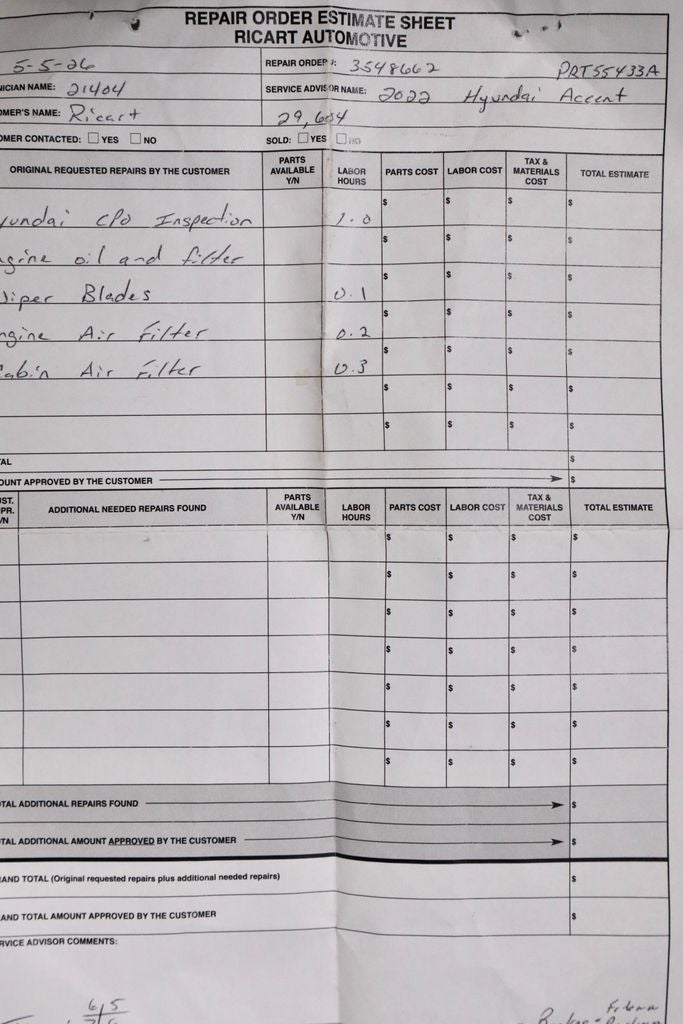 REPAIR ORDER ESTIMATE SHEET
RICART AUTOMOTIVE
5-5-26 REPAIR ORDER #: 3548662 PRT55433A
NICIAN NAME: 21404 SERVICE ADVISOR NAME: 2022 Hyundai Accent
OMER'S NAME: Ricart 29,684
OMER CONTACTED: YES NO SOLD: YES NO
ORIGINAL REQUESTED REPAIRS BY THE CUSTOMER PARTS AVAILABLE Y/N LABOR HOURS PARTS COST LABOR COST TAX & MATERIALS COST TOTAL ESTIMATE
yundai CPO Inspection 1.0 $ $ $ $
ngine oil and filter $ $ $ $
Wiper Blades 0.1 $ $ $ $
ngine Air Filter 0.2 $ $ $ $
Cabin Air Filter 0.3 $ $ $ $
$ $ $ $
$ $ $ $
TAL $
OUNT APPROVED BY THE CUSTOMER $
ST. PR. /N ADDITIONAL NEEDED REPAIRS FOUND PARTS AVAILABLE Y/N LABOR HOURS PARTS COST LABOR COST TAX & MATERIALS COST TOTAL ESTIMATE
$ $ $ $
$ $ $ $
$ $ $ $
$ $ $ $
$ $ $ $
$ $ $ $
$ $ $ $
TAL ADDITIONAL REPAIRS FOUND $
TAL ADDITIONAL AMOUNT APPROVED BY THE CUSTOMER $
AND TOTAL (Original requested repairs plus additional needed repairs) $
AND TOTAL AMOUNT APPROVED BY THE CUSTOMER $
RVICE ADVISOR COMMENTS:
6 5